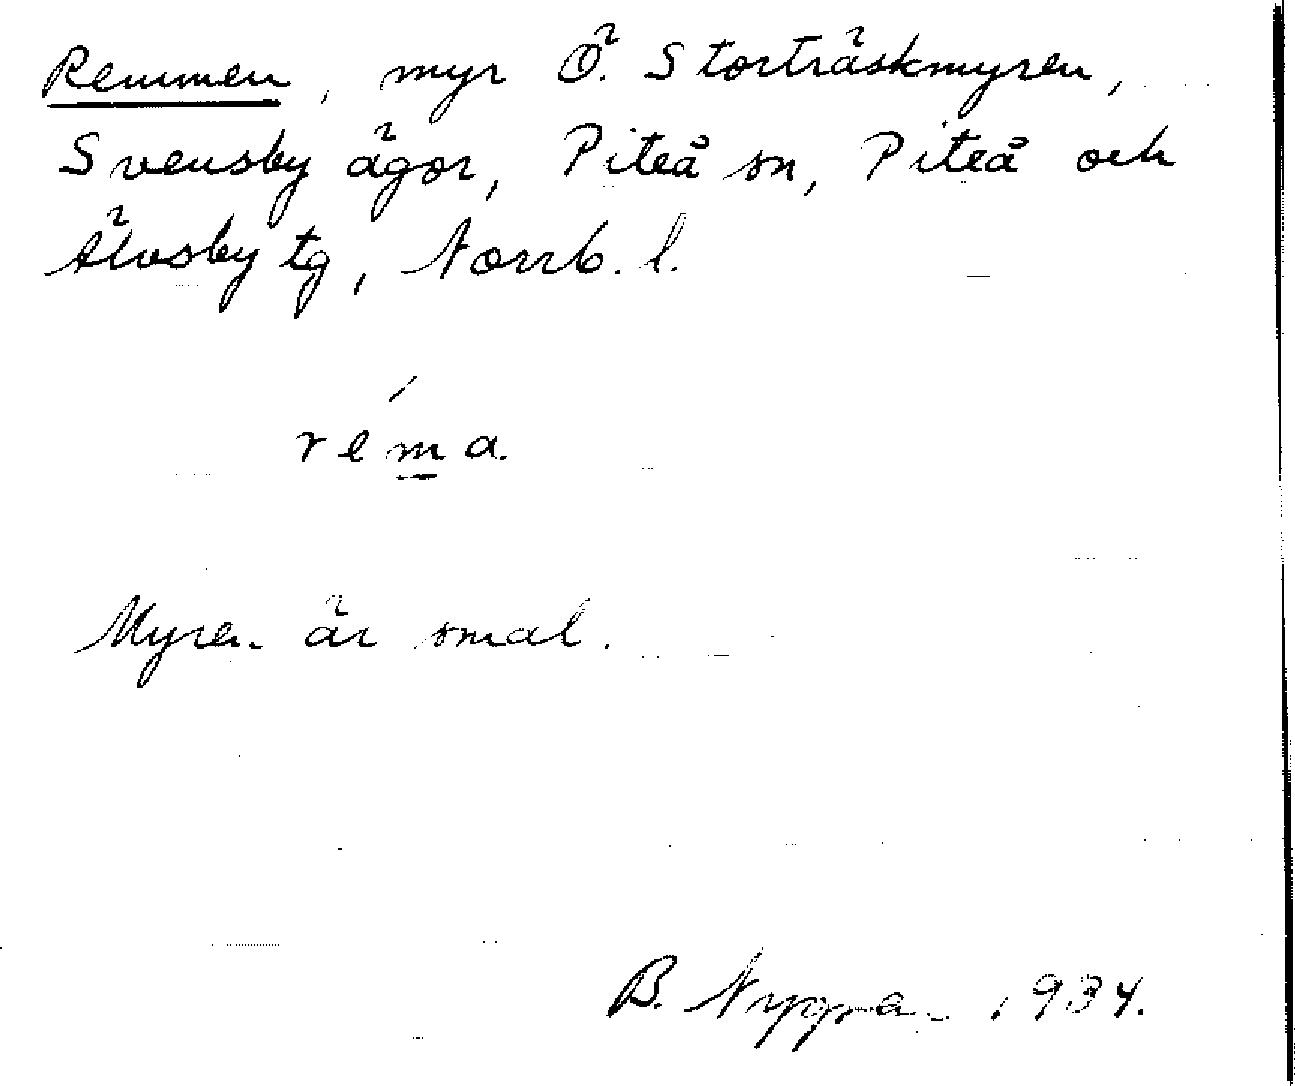 Remmen, myr Ö. Storträskmyren,
Svensby ägor, Piteå sn, Piteå och
Älvsby tg, Norrb. l.
réma.
Myren är smal.
B. Nygren 1934.